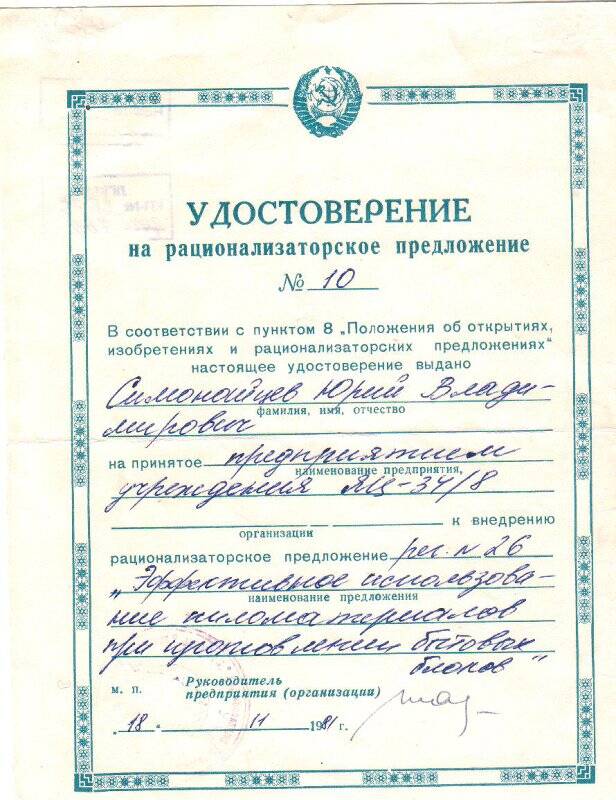 УДОСТОВЕРЕНИЕ
на рационализаторское предложение
№ 10
В соответствии с пунктом 8 „Положения об открытиях,
изобретениях и рационализаторских предложениях“
настоящее удостоверение выдано
Симонайцев Юрий Влади-
фамилия, имя, отчество
мирович
на принятое предприятием
наименование предприятия,
учреждения ЯЦ-34/8
организации
к внедрению
рационализаторское предложение рег. N 26
„Эффективное использова-
наименование предложения
ние пиломатериалов
при изготовлении бытовых
блоков“
м. п.
Руководитель
предприятия (организации)
„18“ 11 1981 г.